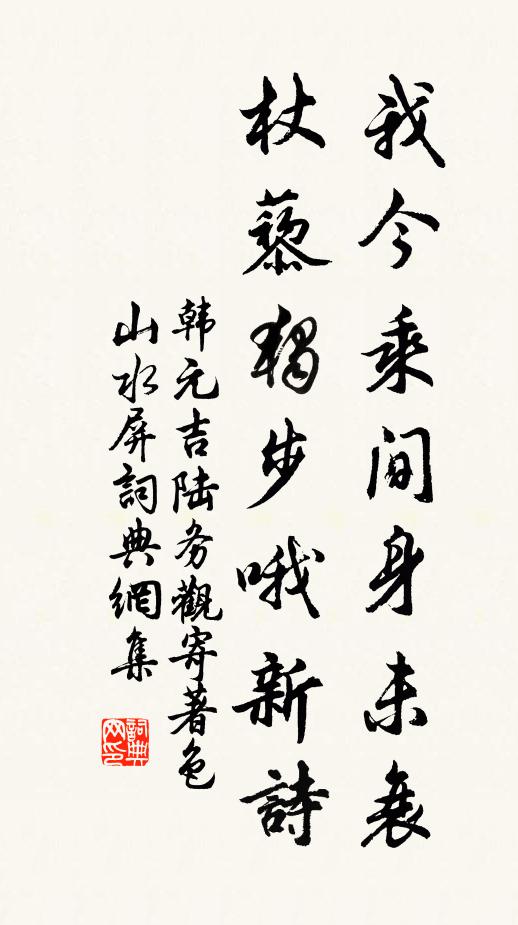 我今乘间身未衰
杖藜独步哦新诗
韩元吉陆务觀寄著色
山水屏詞典網集
詞典
网印